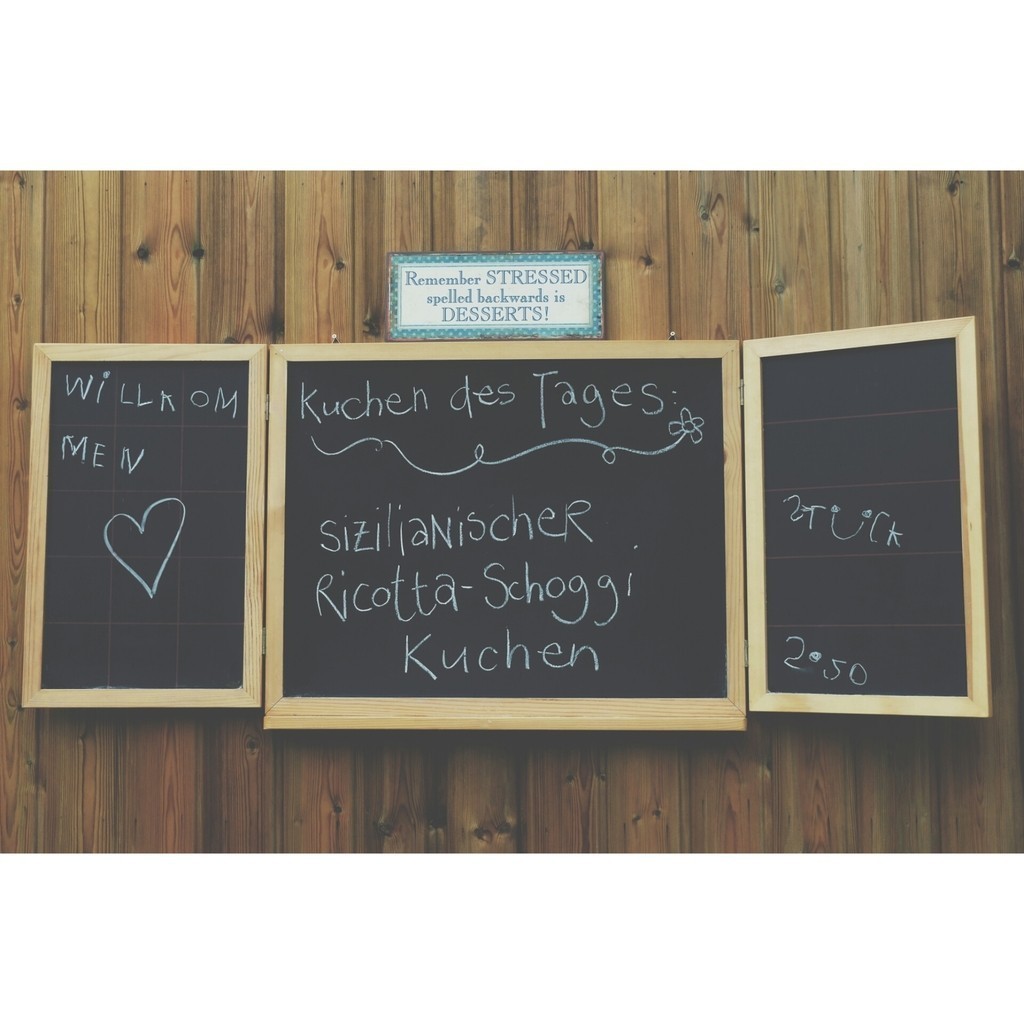 Remember STRESSED
spelled backwards is
DESSERTS!
WiLLKOM
MEN
Kuchen des Tages:
SiZiliaNischeR
Ricotta-Schoggi
Kuchen
STÜCK
2.50